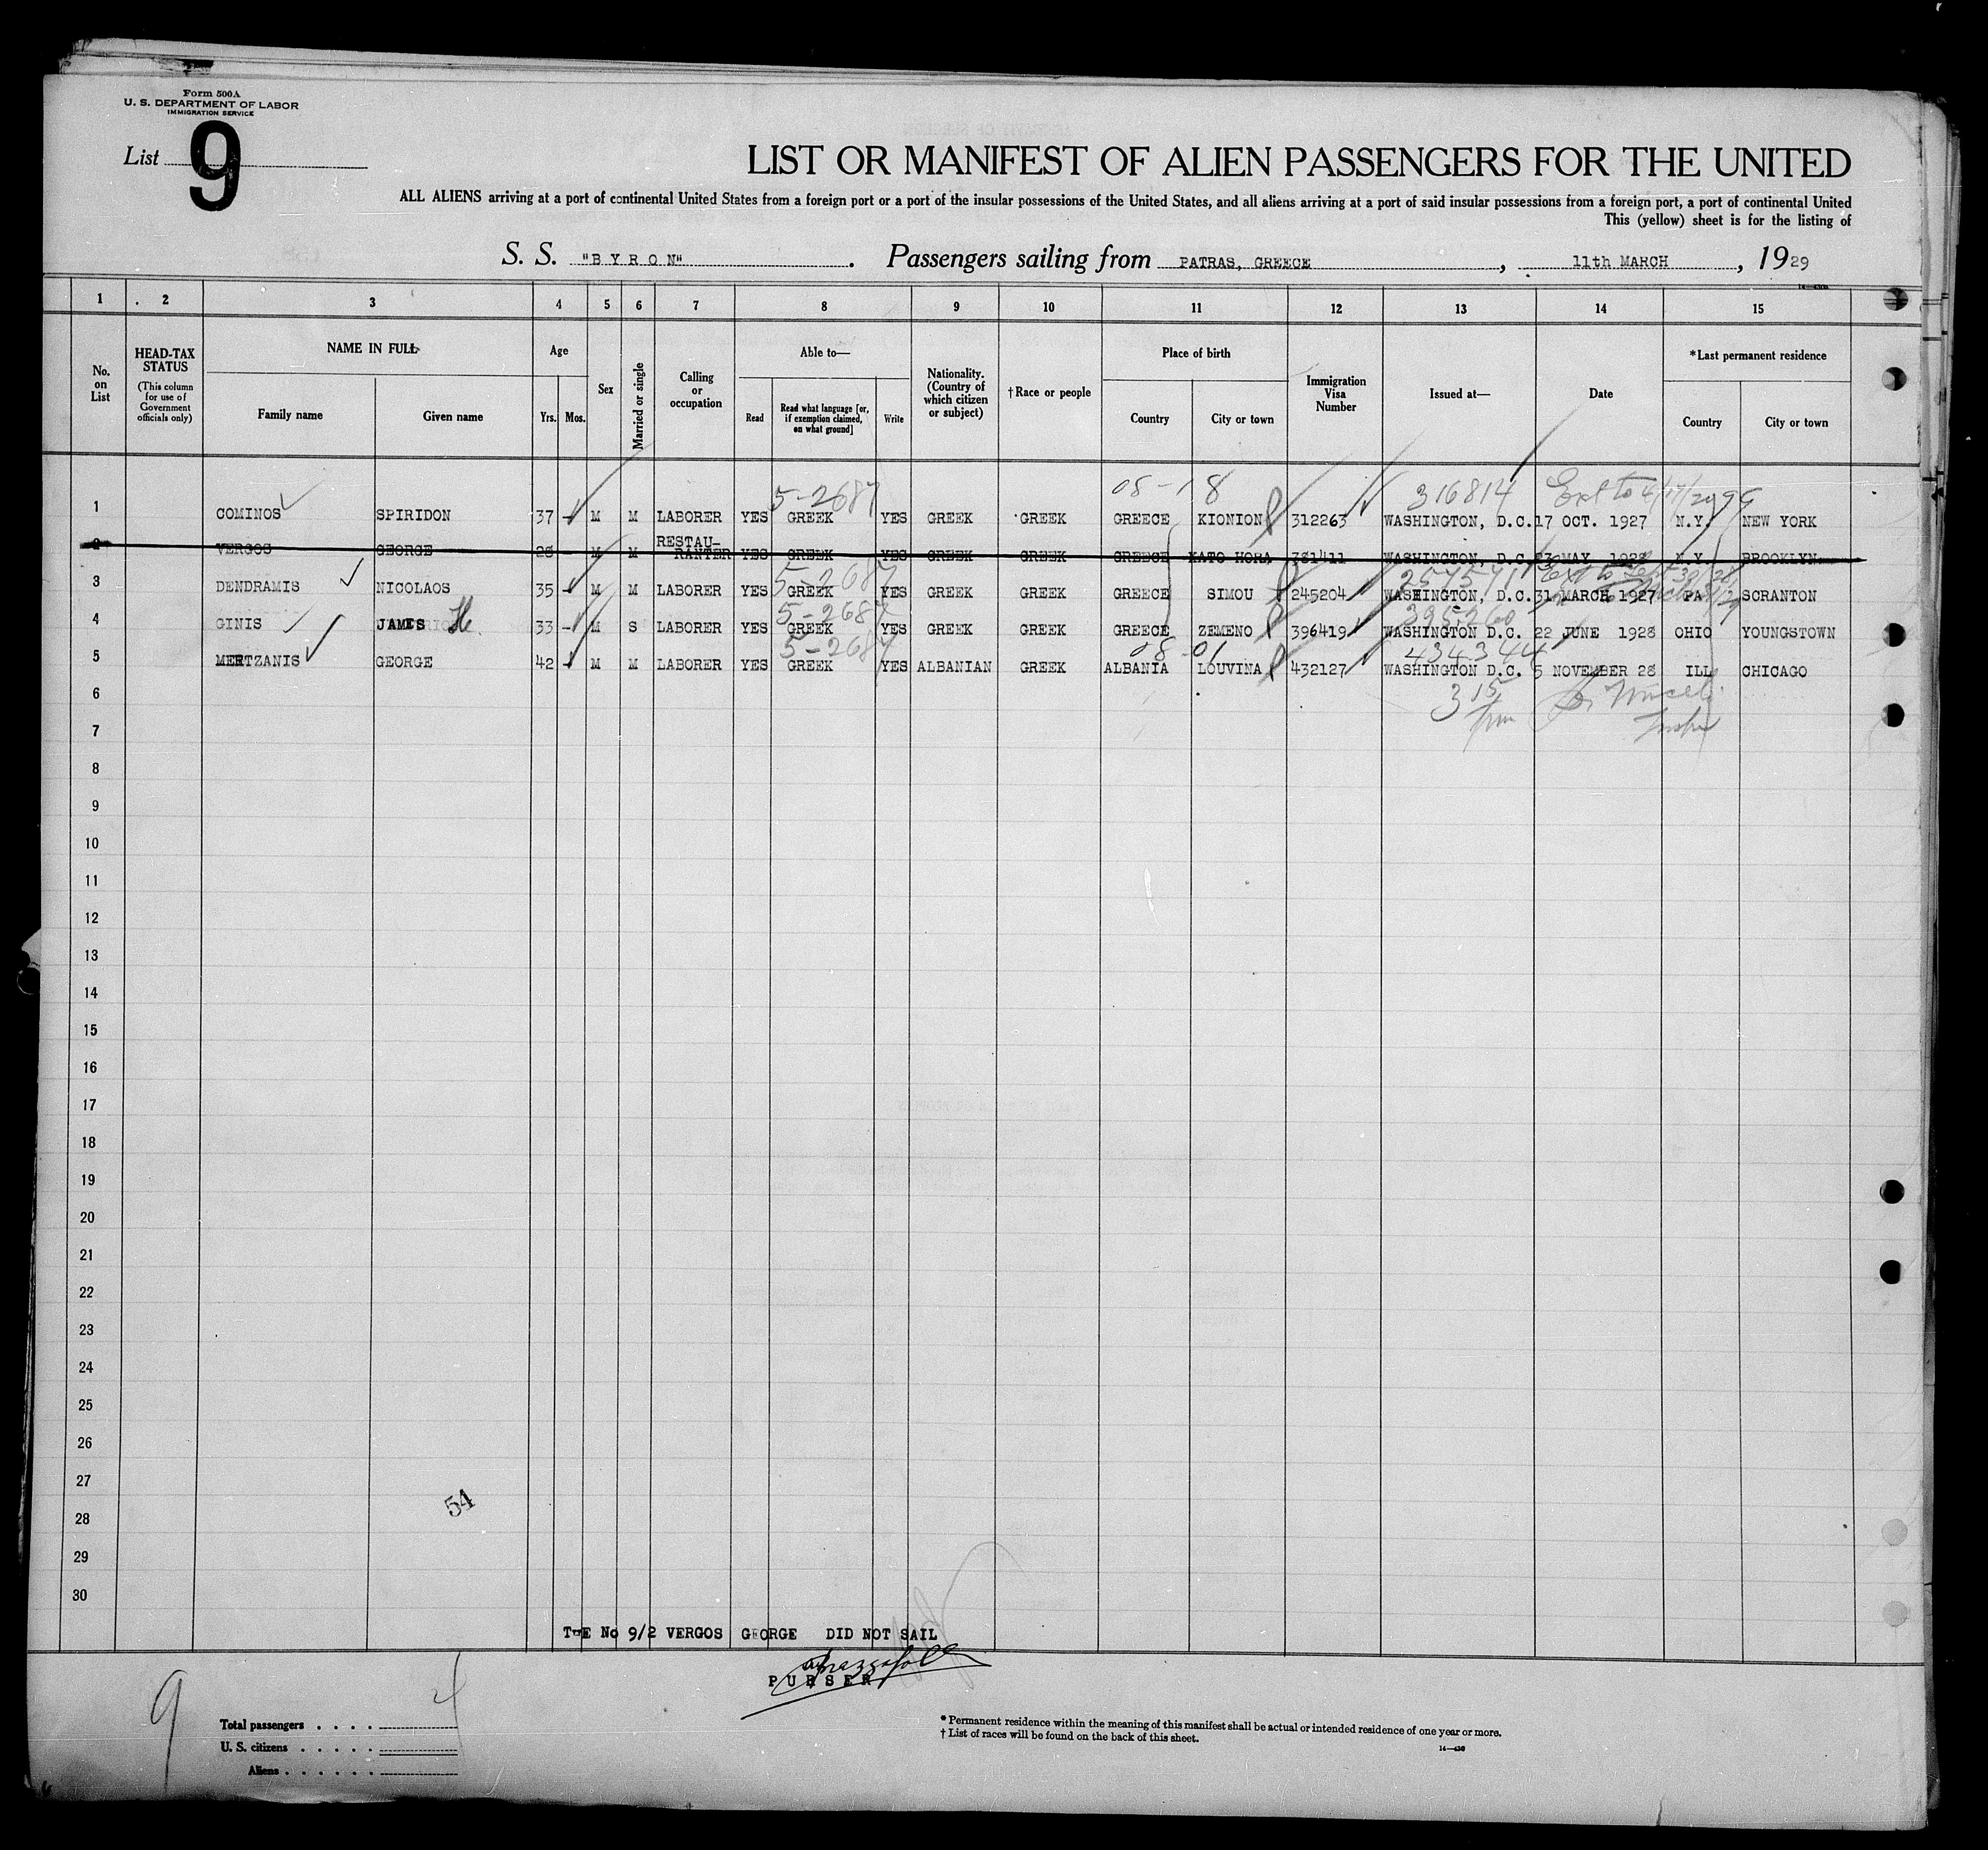 Form 500A
U. S. DEPARTMENT OF LABOR
IMMIGRATION SERVICE
List 9
LIST OR MANIFEST OF ALIEN PASSENGERS FOR THE UNITED
ALL ALIENS arriving at a port of continental United States from a foreign port or a port of the insular possessions of the United States, and all aliens arriving at a port of said insular possessions from a foreign port, a port of continental United
This (yellow) sheet is for the listing of
S. S. "BYRON". Passengers sailing from PATRAS, GREECE, 11th MARCH, 1929
1 2 3 4 5 6 7 8 9 10 11 12 13 14 15
No. on List
HEAD-TAX STATUS (This column for use of Government officials only)
NAME IN FULL
Family name Given name
Age
Yrs. Mos.
Sex
Married or single
Calling or occupation
Able to—
Read Read what language [or, if exemption claimed, on what ground] Write
Nationality. (Country of which citizen or subject)
†Race or people
Place of birth
Country City or town
Immigration Visa Number
Issued at—
Date
*Last permanent residence
Country City or town
5-2687 08-18 316814 Ext to 4/17/29
1 COMINOS SPIRIDON 37 - M M LABORER YES GREEK YES GREEK GREEK GREECE KIONION 312263 WASHINGTON, D.C. 17 OCT. 1927 N.Y. NEW YORK
2 VERGOS GEORGE 28 - M M RESTAU-RANTER YES GREEK YES GREEK GREEK GREECE KATO HORA, 381411 WASHINGTON, D.C. 23 MAY 1928 N.Y. BROOKLYN
5-2687 257571
3 DENDRAMIS NICOLAOS 35 - M M LABORER YES GREEK YES GREEK GREEK GREECE SIMOU 245204 WASHINGTON, D.C. 31 MARCH 1927 PA SCRANTON
5-2687 395260
4 GINIS JAMES H. 33 - M S LABORER YES GREEK YES GREEK GREEK GREECE ZEMENO 396419 WASHINGTON D.C. 22 JUNE 1928 OHIO YOUNGSTOWN
5-2687 08-01 434344
5 MERTZANIS GEORGE 42 - M M LABORER YES GREEK YES ALBANIAN GREEK ALBANIA LOUVINA 432127 WASHINGTON D.C. 5 NOVEMBER 28 ILL CHICAGO
6
3 15
7
8
9
10
11
12
13
14
15
16
17
18
19
20
21
22
23
24
25
26
27
54
28
29
30
THE No 9/2 VERGOS GEORGE DID NOT SAIL
PURSER
9
4
Total passengers . . . .
U. S. citizens . . . . .
Aliens . . . . . .
* Permanent residence within the meaning of this manifest shall be actual or intended residence of one year or more.
† List of races will be found on the back of this sheet.
14—430